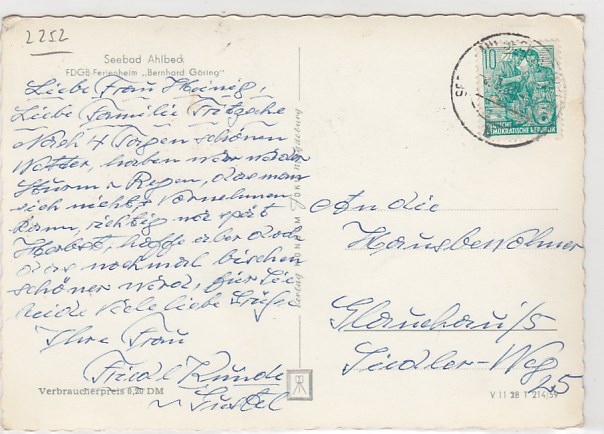 2252
Seebad Ahlbeck
FDGB-Ferienheim „Bernhard Göring"
Liebe Frau Heinig,
Liebe Familie Tritzsche
Nach 4 Tagen schönen
Wetter, haben wir wieder
Sturm u Regen, das man
sich nichts vornehmen
kann, richtig wie spät
Herbst, hoffe aber doch
das nochmal bischen
schöner wird, für Sie
beide viele liebe Grüße
Ihre Frau
Friedl Kunde
Verbraucherpreis 0,20 DM
Verlag
10
DEUTSCHE
DEMOKRATISCHE REPUBLIK
An die
Hausbewohner
Glauchau/S
Siedler-Weg
25
V 11 28 1 214/59